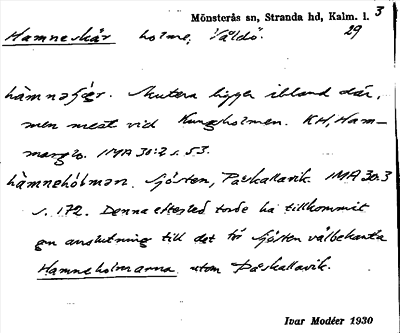 Mönsterås sn, Stranda hd, Kalm. l. 3
Hamneskär holme, Vållö. 29
hàmnəʃęr. Skutera ligger ibland där,
men mest vid Kungsholmen. KH, Ham-
marglo. IMA 30:2 s. 53.
hàmnəhólmən. Sjösten, Påskallavik. IMA 30:3
s. 172. Denna efterled torde ha tillkommit
gn anslutning till det för Sjösten välbekanta
Hamneholmarna utom Påskallavik.
Ivar Modéer 1930